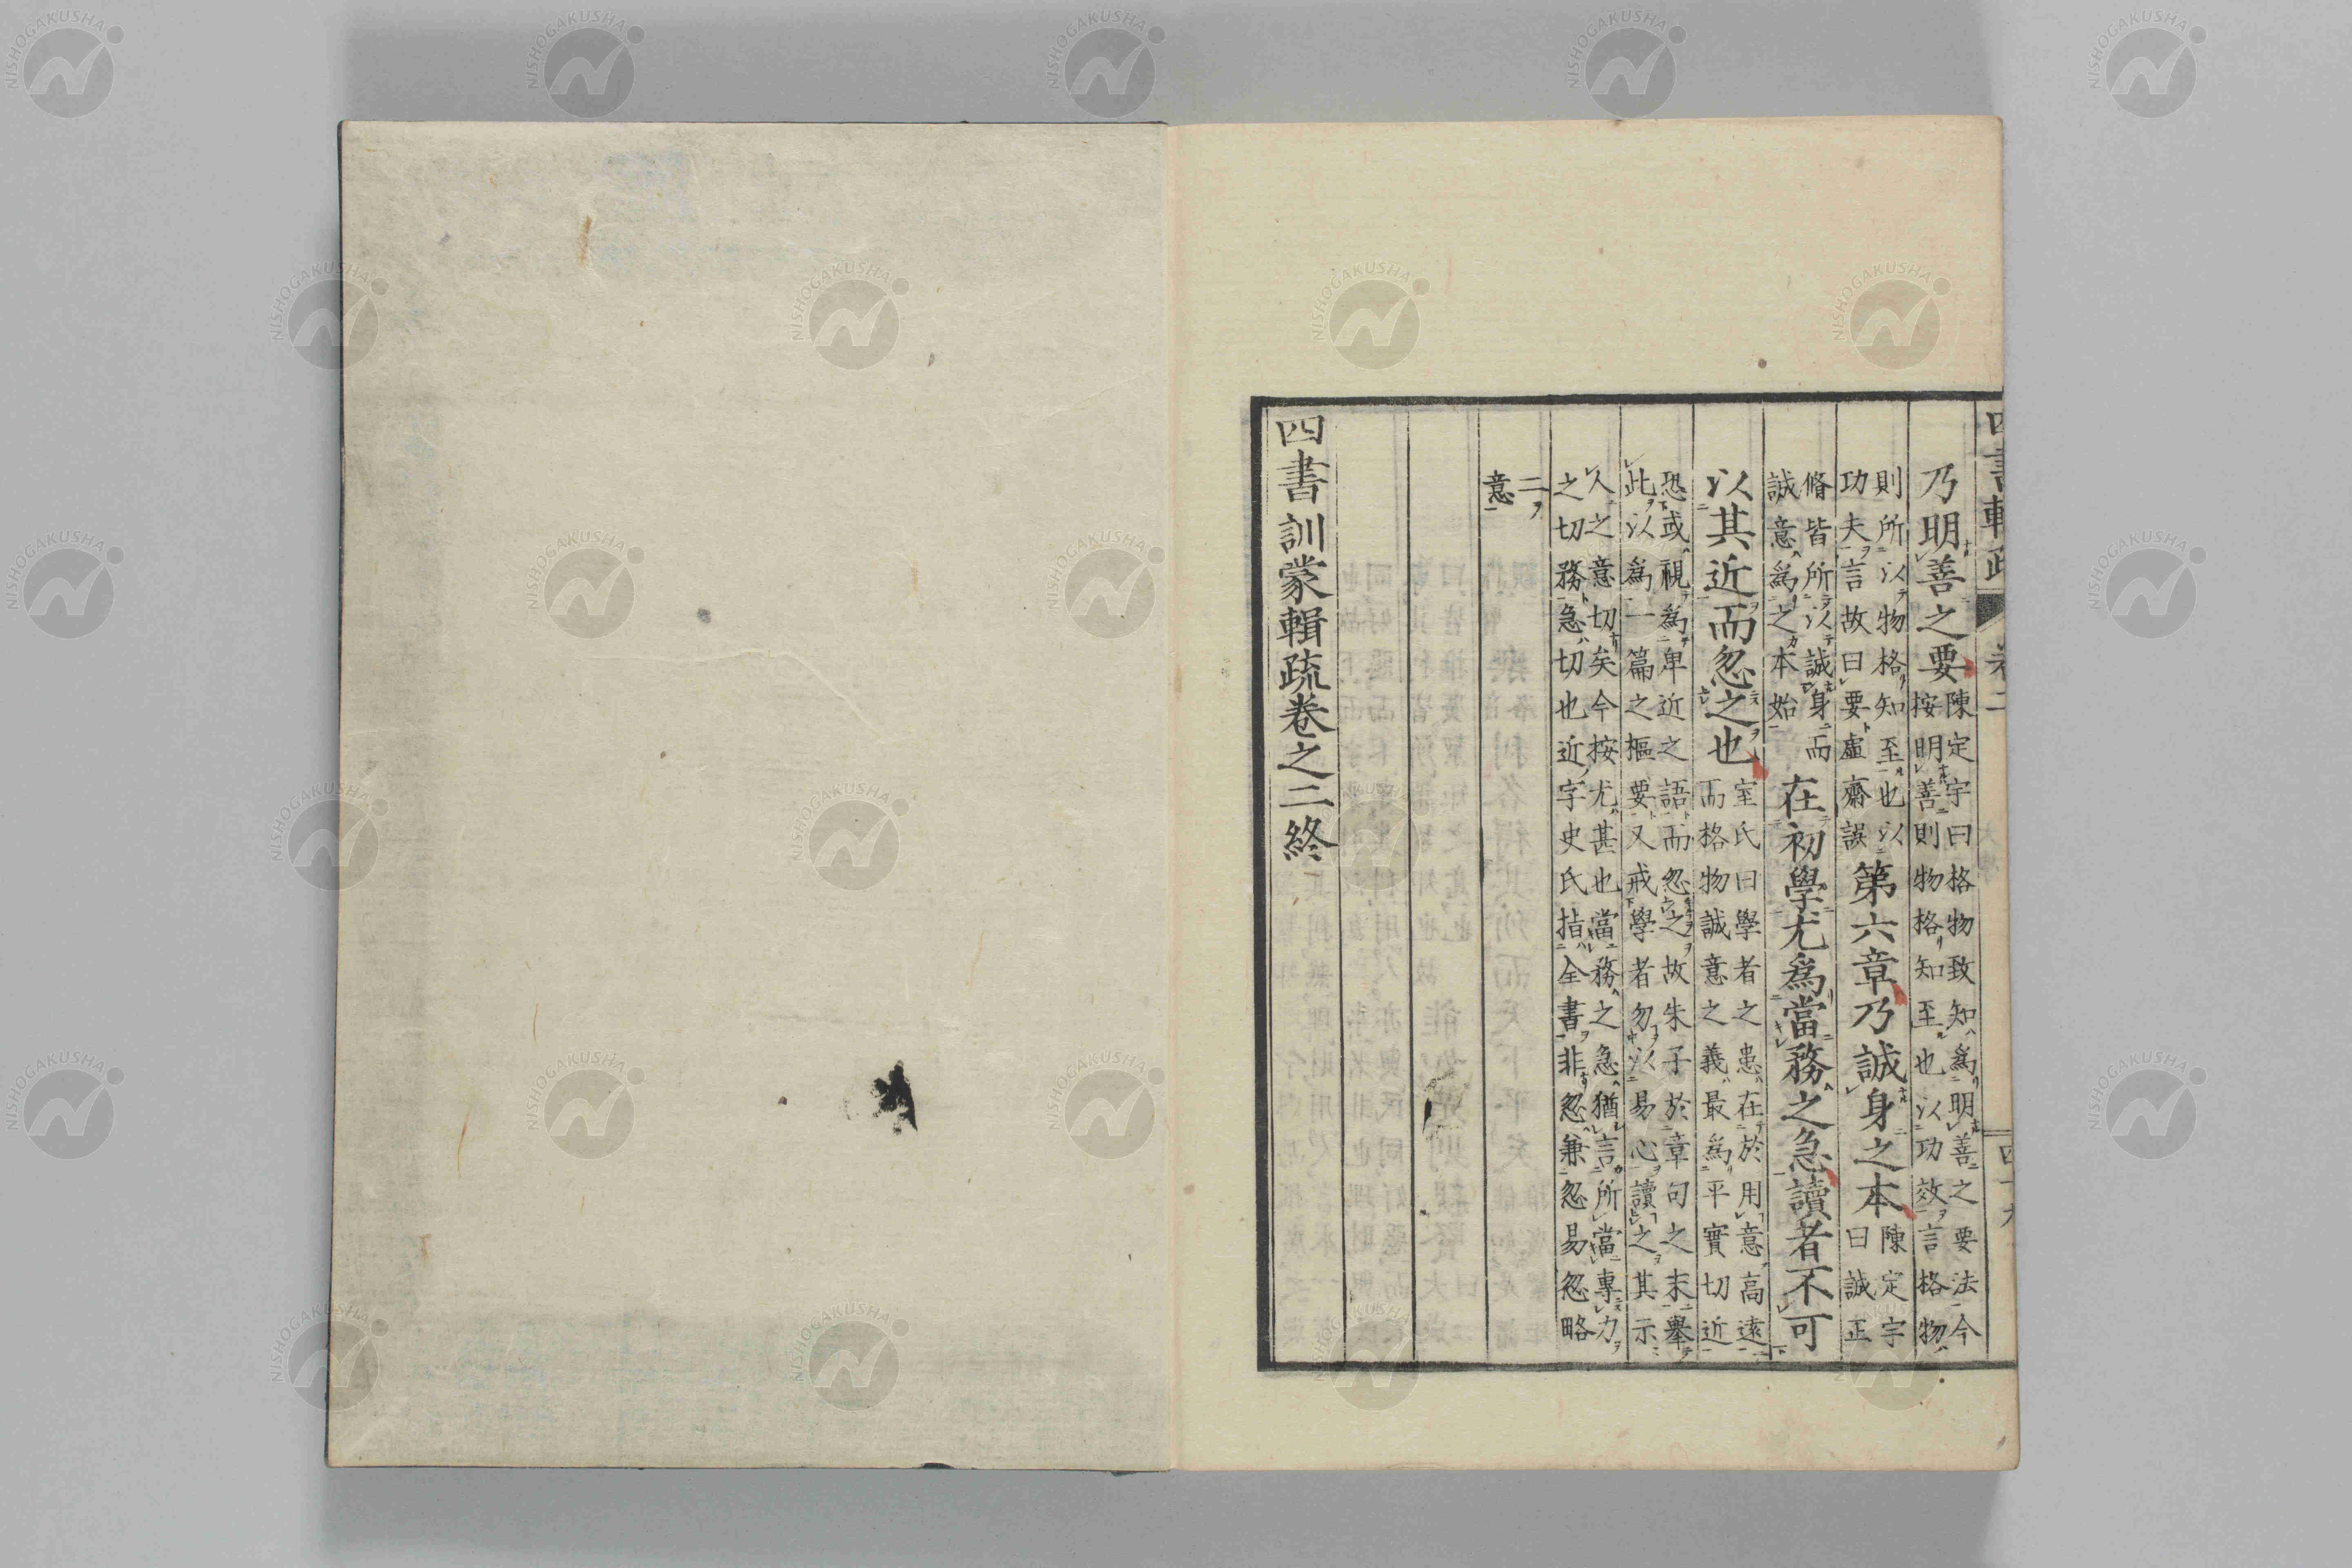 四書輯疏 卷二 四十九
乃明善之要
陳定宇曰格物致知爲明善之要法今
按明善則物格知至也以功效言格物
則所以物格知至也以
功夫言故曰要虛齋誤
第六章乃誠身之本
陳定宇
曰誠正
脩皆所以誠身而
誠意爲之本始
在初學尤爲當務之急讀者不可
以其近而忽之也
室氏曰學者之患在於用意高遠
而格物誠意之義最爲平實切近
恐或視爲卑近之語而忽之故朱子於章句之末舉
此以爲一篇之樞要又戒學者勿以易心讀之其示
人之意切矣今按尤甚也當務之急猶言所當專力
之切務急切也近字史氏指全書非忽兼忽易忽略
二
意
四書訓蒙輯疏卷之二終
NISHOGAKUSHA